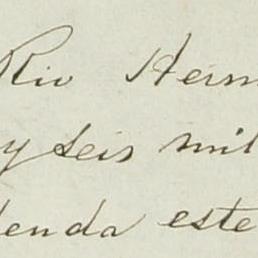 Rio Herm
y seis mil
denda este